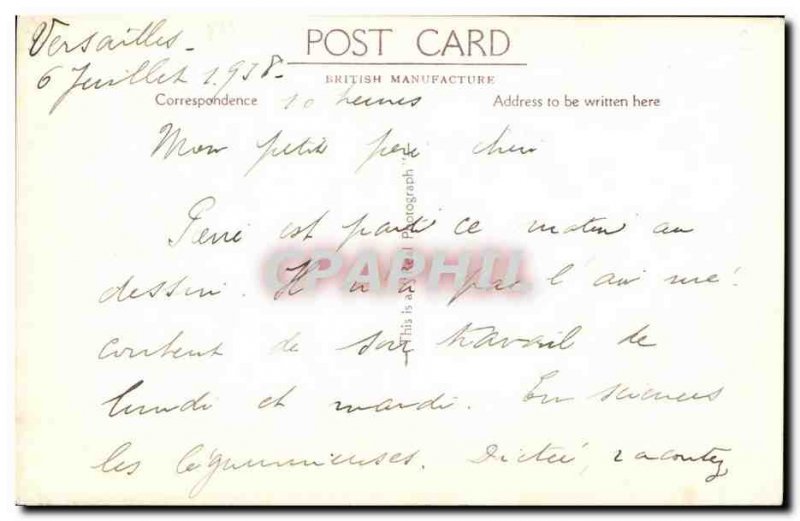 Versailles -
6 Juillet 1938 -
POST CARD
BRITISH MANUFACTURE
Correspondence 10 heures Address to be written here
Mon petit père chéri
This is a Real Photograph
Pierre est parti ce matin au
dessin. Il n'a pas l'air mé-
CPAPHIL
content de son travail de
lundi et mardi. En sciences
les légumineuses. Dictée, racontez